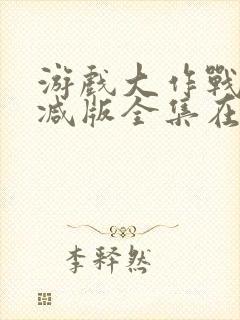 游戏大作戰
减版全集在
李释然